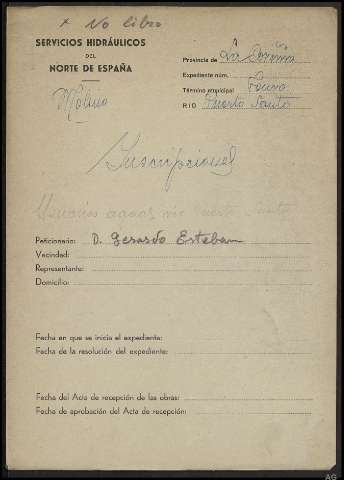 x No libro
SERVICIOS HIDRÁULICOS
DEL
NORTE DE ESPAÑA
Molino
Provincia de La Coruña
Expediente núm.
Término municipal
RIO Puerto Santo
Inscripciones
Usuarios aguas río Puerto Santo
Peticionario: D. Gerardo Esteban
Vecindad:
Representante:
Domicilio:
Fecha en que se inicia el expediente:
Fecha de la resolución del expediente:
Fecha del Acta de recepción de las obras:
Fecha de aprobación del Acta de recepción:
AG